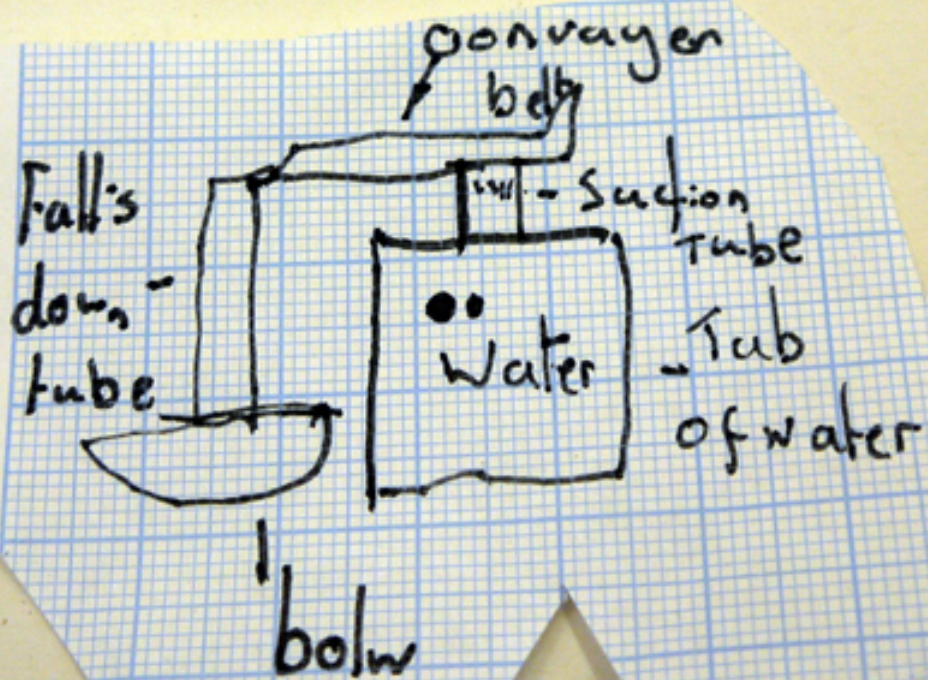 convayen
belt
Falls
down
tube
Suction
Tube
Water
Tub
of water
bolw